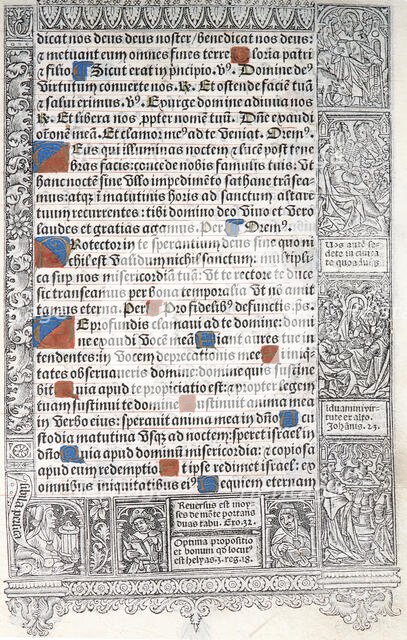 dicat nos deus deus noster / benedicat nos deus:
⁊ metuant eum omnes fines terre Gloria patri
⁊ filio. Sicut erat in p̄ncipio. V⁹. Domine de⁹
virtutum conuerte nos. R. Et ostende faciē tuā
⁊ salui erimus. V⁹. Exurge domine adiuua nos
R. Et libera nos ꝓpter nomē tuū. Dn̄e exaudi
or̄onē meā. Et clamor me⁹ ad te veniat. Orem⁹.
Deus qui illuminas noctem ⁊ lucē post tene
bras facis: concede nobis famulis tuis: vt
hanc noctē sine vllo impedimēto sathane trāsea-
mus: atqꝫ ī matutinis horis ad sanctum altare
tuum recurrentes: tibi domino deo viuo et vero
laudes et gratias agamus. Per Orem⁹.
Protector in te sperantium deus sine quo ni
chil est validum nichil sanctum: multiplica
sup nos misericordiā tuā: vt te rectore te duce
sic transeamus per bona temporalia vt nō amit
tamus eterna. Per Pro fidelib⁹ defunctis. ps.
De profundis clamaui ad te domine: domi
ne exaudi vocē meā Fiant aures tue in-
tendentes: in vocem deprecationis mee Si iniqui-
tates obseruaueris domine: domine quis sustine
bit Quia apud te propiciatio est: ⁊ propter legem
tuam sustinui te domine Sustinuit anima mea
in verbo eius: sperauit anima mea in dn̄o A cu
stodia matutina vsqꝫ ad noctem: speret israel in
dn̄o Quia apud dominū misericordia: ⁊ copiosa
apud eum redemptio Et ipse redimet israel: ex
omnibus iniquitatibus ei⁹ Requiem eternam
Vos autē se-
dete in ciuita
te quoadusqꝫ
iduamini vir-
tute ex alto.
Johānis. 23.
Reuersus est moy-
ses de mōte portans
duas tabu. Exo. 32.
Optima propositio
et bonum qd̄ locut⁹
est helyas. 3. reg. 18.